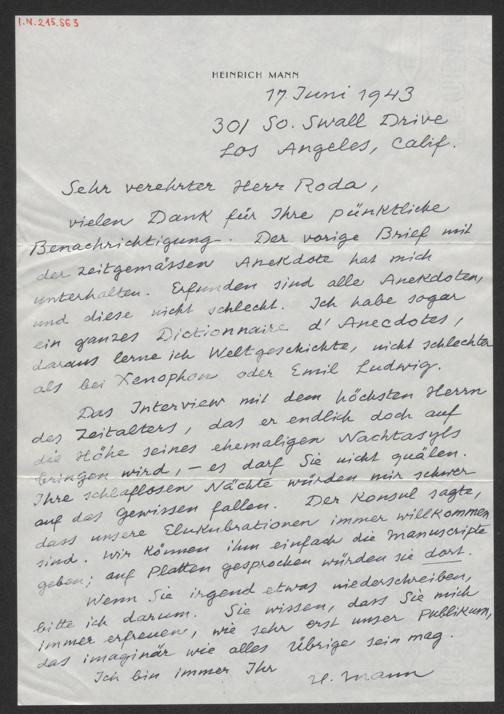 I.N.215.563
HEINRICH MANN
17 Juni 1943
301 So. Swall Drive
Los Angeles, Calif.
Sehr verehrter Herr Roda,
vielen Dank für Ihre pünktliche
Benachrichtigung. Der vorige Brief mit
der zeitgemässen Anekdote hat mich
unterhalten. Erfunden sind alle Anekdoten,
und diese nicht schlecht. Ich habe sogar
ein ganzes Dictionnaire d'Anecdotes,
daraus lerne ich Weltgeschichte, nicht schlechter
als bei Xenophon oder Emil Ludwig.
Das Interview mit dem höchsten Herrn
des Zeitalters, das er endlich doch auf
die Höhe seines ehemaligen Nachtasyls
bringen wird, – es darf Sie nicht quälen.
Ihre schlaflosen Nächte würden mir schwer
auf das Gewissen fallen. Der Konsul sagte,
dass unsere Elukubrationen immer willkommen
sind. Wir können ihm einfach die Manuscripte
geben; auf Platten gesprochen würden sie dort.
Wenn Sie irgend etwas niederschreiben,
bitte ich darum. Sie wissen, dass Sie mich
immer erfreuen, wie sehr erst unser Publikum,
das imaginär wie alles Übrige sein mag.
Ich bin immer Ihr
H. Mann